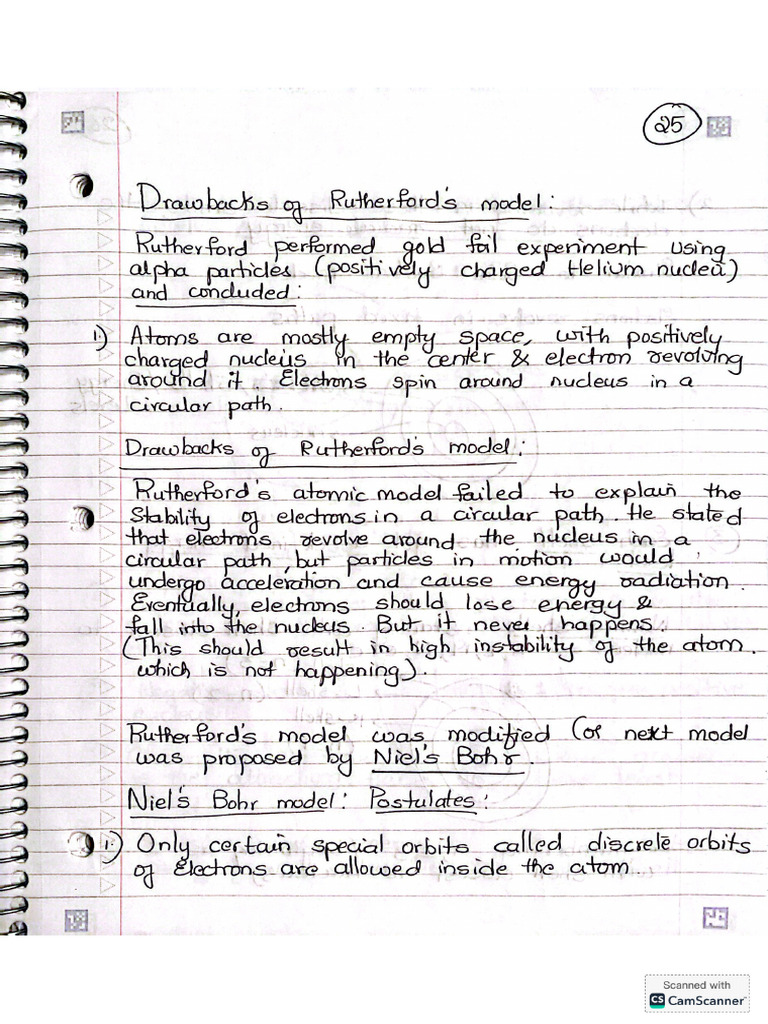 25
Drawbacks of Rutherford's model:
Rutherford performed gold foil experiment using
alpha particles (positively charged Helium nuclei)
and concluded:
1) Atoms are mostly empty space, with positively
charged nucleus in the center & electron revolving
around it. Electrons spin around nucleus in a
circular path.
Drawbacks of Rutherford's model:
Rutherford's atomic model failed to explain the
Stability of electrons in a circular path. He stated
that electrons revolve around the nucleus in a
circular path, but particles in motion would
undergo acceleration and cause energy radiation.
Eventually, electrons should lose energy &
fall into the nucleus. But it never happens.
(This should result in high instability of the atom.
which is not happening).
Rutherford's model was modified (or next model
was proposed by Niel's Bohr.
Niel's Bohr model: Postulates:
1.) Only certain special orbits called discrete orbits
of Electrons are allowed inside the atom.
Scanned with
CS CamScanner